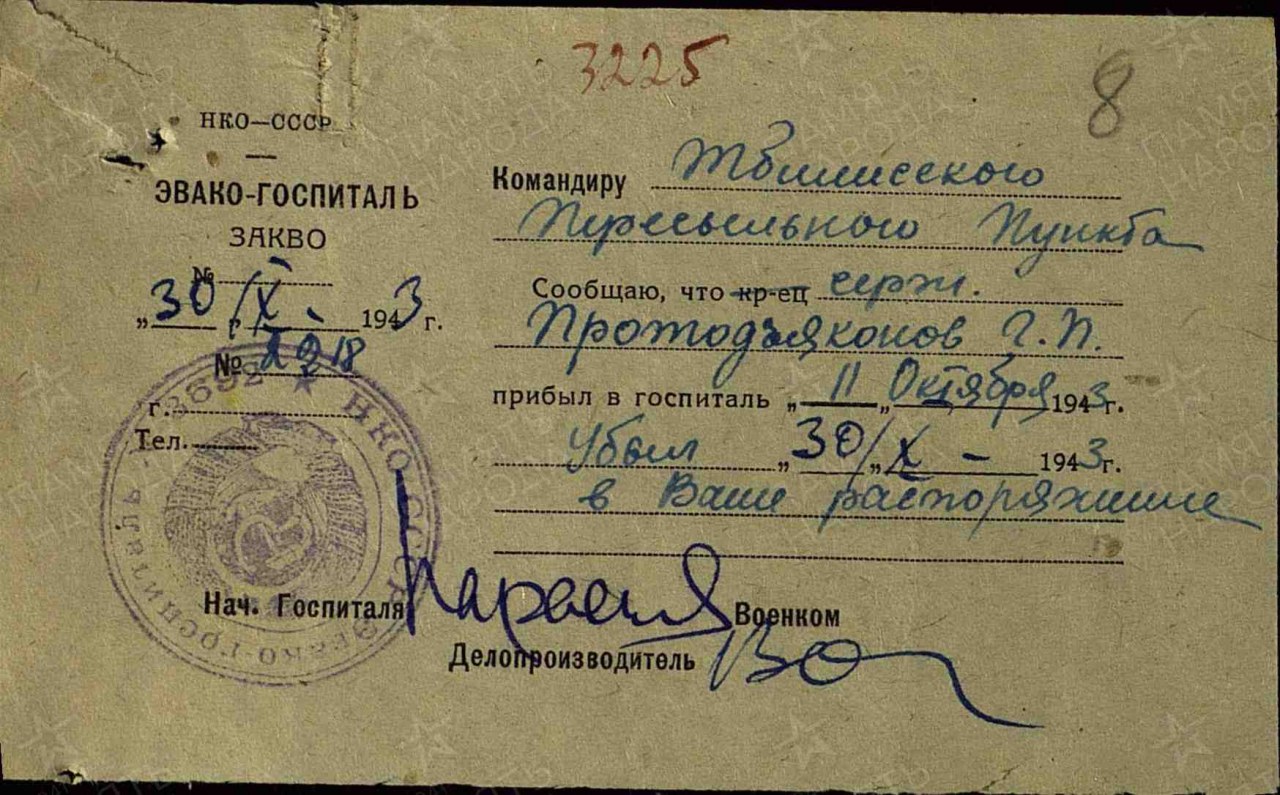 3225
8
НКО—СССР
ЭВАКО-ГОСПИТАЛЬ
ЗАКВО
№
„30/X - 1943 г.
№ 2918
г.
Тел.
Командиру Тбилисского
Пересыльного Пункта
Сообщаю, что кр-ец серж.
Протодьяконов Г.П.
прибыл в госпиталь „11„ Октября 1943г.
Убыл „30/„X - 1943г.
в Ваше распоряжение
Нач. Госпиталя
Военком
Делопроизводитель
НКО-СССР ЭВАКО-ГОСПИТАЛЬ
ПАМЯТЬ НАРОДА